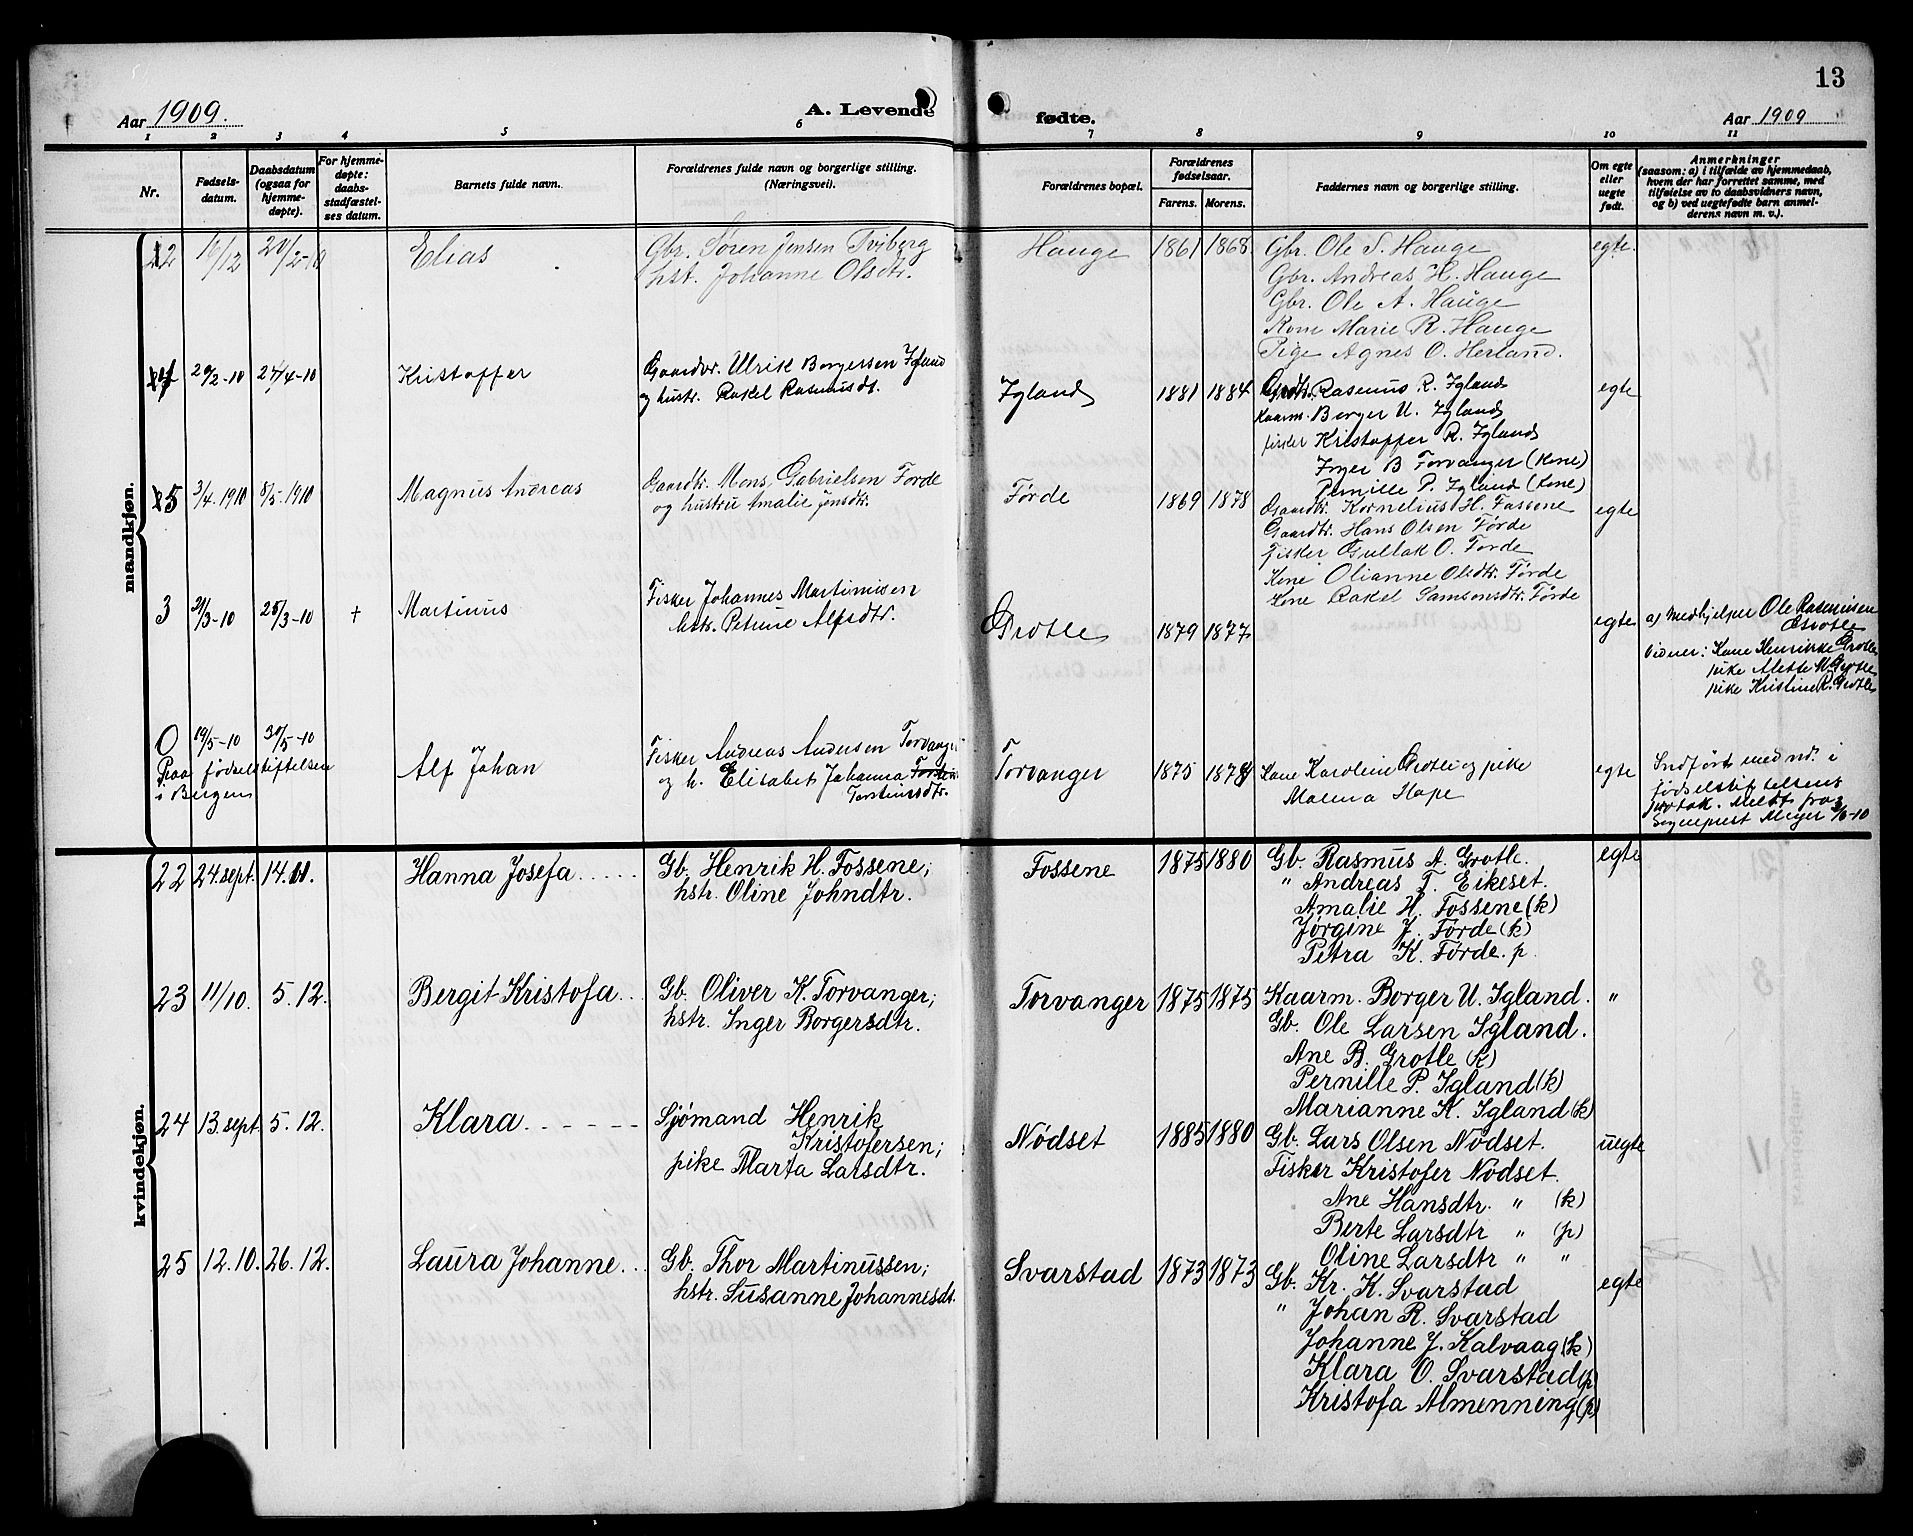 13
Aar 1909.
A. Levende fødte.
Aar 1909
1 2 3 4 5 6 7 8 9 10 11
Nr.
Fødsels-
datum.
Daabsdatum
(ogsaa for
hjemme-
døpte).
For hjemme-
døpte:
daabs-
stadfæstel-
ses datum.
Barnets fulde navn.
Forældrenes fulde navn og borgerlige stilling.
(Næringsvei).
Forældrenes bopæl.
Forældrenes
fødselsaar.
Farens. Morens.
Faddernes navn og borgerlige stilling.
Om egte
eller
uegte
født.
Anmerkninger
(saasom: a) i tilfælde av hjemmedaab,
hvem der har forrettet samme, med
tilføielse av to daabsvidners navn,
og b) ved uegtefødte barn anmel-
derens navn m. v.).
mandkjøn.
Elias
Gbr. Søren Jensen Tviberg
hst. Johanne Olsdtr.
Hauge 1861 1868.
Gbr. Ole S. Hauge
Gbr. Andreas H. Hauge
Gbr. Ole A. Hauge
Kone Marie R. Hauge
Pige Agnes O. Herland.
egte.
4 20/2-10 27/4-10 Kristoffer
Gaardbr. Ulrik Borgersen Igland
og hustr. Rakel Rasmusdt.
Igland 1881 1884
Grdbr. Rasmus R. Igland
Kaarm. Borger U. Igland
fisker Kristoffer R. Igland
Inger B Torvanger (kone)
Pernille P. Igland (kone)
egte
5 3/4.1910 8/5.1910 Magnus Andreas
Gaardbr. Mons Gabrielsen Førde
og hustru Amalie Jensdtr.
Førde 1869 1878
Gaardbr. Kornelius H. Fossene
Gaardbr. Hans Olsen Førde
Fisker Gullak O. Førde
Kone Olianne Olsdtr. Førde
Kone Rakel Samsonsdtr. Førde
egte
3 21/3-10 25/3-10 + Martinus
Fisker Johannes Martinusen
hstr. Petrine Alfsdtr.
Grotle 1879 1877
egte
a) Medhjelper Ole Rasmusen
Grotle
Vidner: Kone Henrikke Grotle
pike Mette M. Grotle
pike Kristine R. Grotle
0 19/5-10 30/5-10
Paa fødselsstiftelsen
i Bergen
Alf Johan
Fisker Andreas Andersen Torvanger
og h. Elisabet Johanna
Torstensdtr.
Torvanger 1875 1878
Kone Karoline Grotle og pike
Malena Hope
egte
Indført med nr. i
fødselsstiftelsens
protok. Meldt fra
Sogneprest Meyer 3/6-10
kvindekjøn.
22 24.sept. 14.11. Hanna Josefa
Gb. Henrik H. Fossene;
hstr. Oline Johndtr.
Fossene 1875 1880
Gb. Rasmus A. Grotle.
" Andreas T. Eikeset.
Amalie H. Fossene (k)
Jørgine J. Førde (k)
Petra K. Førde. p.
egte
23 11/10. 5.12. Bergit Kristofa
Gb. Oliver K. Torvanger;
hstr. Inger Borgersdtr.
Torvanger 1875 1875
Kaarm. Borger U. Igland.
Gb. Ole Larsen Igland.
Ane B. Grotle (k)
Pernille P. Igland (k)
Marianne K. Igland (k)
"
24 13.sept. 5.12. Klara
Sjømand Henrik
Kristofersen;
pike Marta Larsdtr.
Nödset 1885 1880
Gb. Lars Olsen Nödset.
Fisker Kristofer Nödset.
Ane Hansdtr. " (k)
Berte Larsdtr " (p)
Oline Larsdtr " "
uegte
25 12.10. 26.12. Laura Johanne
Gb. Thor Martinussen;
hstr. Susanne Johannesdt.
Svarstad 1873 1873
Gb. Kr. K. Svarstad
" Johan R. Svarstad
Johanne J. Kalvaag (k)
Klara O. Svarstad (p)
Kristofa Almenning (p)
egte